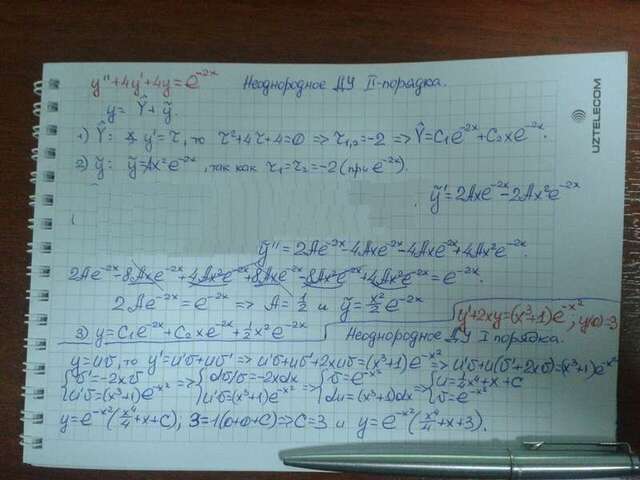 y''+4y'+4y=e^-2x Неоднородное ДУ II-порядка.
y= Ŷ + ỹ.
1) Ŷ: y'=τ, то τ²+4τ+4=0 => τ1,2=-2 => Ŷ=C1e^-2x+C2xe^-2x.
2) ỹ: ỹ=Ax²e^-2x, так как τ1=τ2=-2(при e^-2x).
ỹ'=2Axe^-2x-2Ax²e^-2x
ỹ''=2Ae^-2x-4Axe^-2x-4Axe^-2x+4Ax²e^-2x.
2Ae^-2x-8Axe^-2x+4Ax²e^-2x+8Axe^-2x-8Ax²e^-2x+4Ax²e^-2x=e^-2x.
2Ae^-2x=e^-2x => A=1/2 и ỹ=x²/2 e^-2x
y'+2xy=(x³+1)e^-x²; y(0)=3
3) y=C1e^-2x+C2xe^-2x+1/2x²e^-2x Неоднородное ДУ I порядка.
y=uv, то y'=u'v+uv' => u'v+uv'+2xuv=(x³+1)e^-x² => u'v+u(v'+2xv)=(x³+1)e^-x²
{v'=-2xv => {dv/v=-2xdx => {v=e^-x² => {u=1/4x⁴+x+C
{u'v=(x³+1)e^-x² {u'v=(x³+1)e^-x² {du=(x³+1)dx {v=e^-x²
y=e^-x²(x⁴/4+x+C), 3=1(0+0+C)=>C=3 и y=e^-x²(x⁴/4+x+3).
UZTELECOM